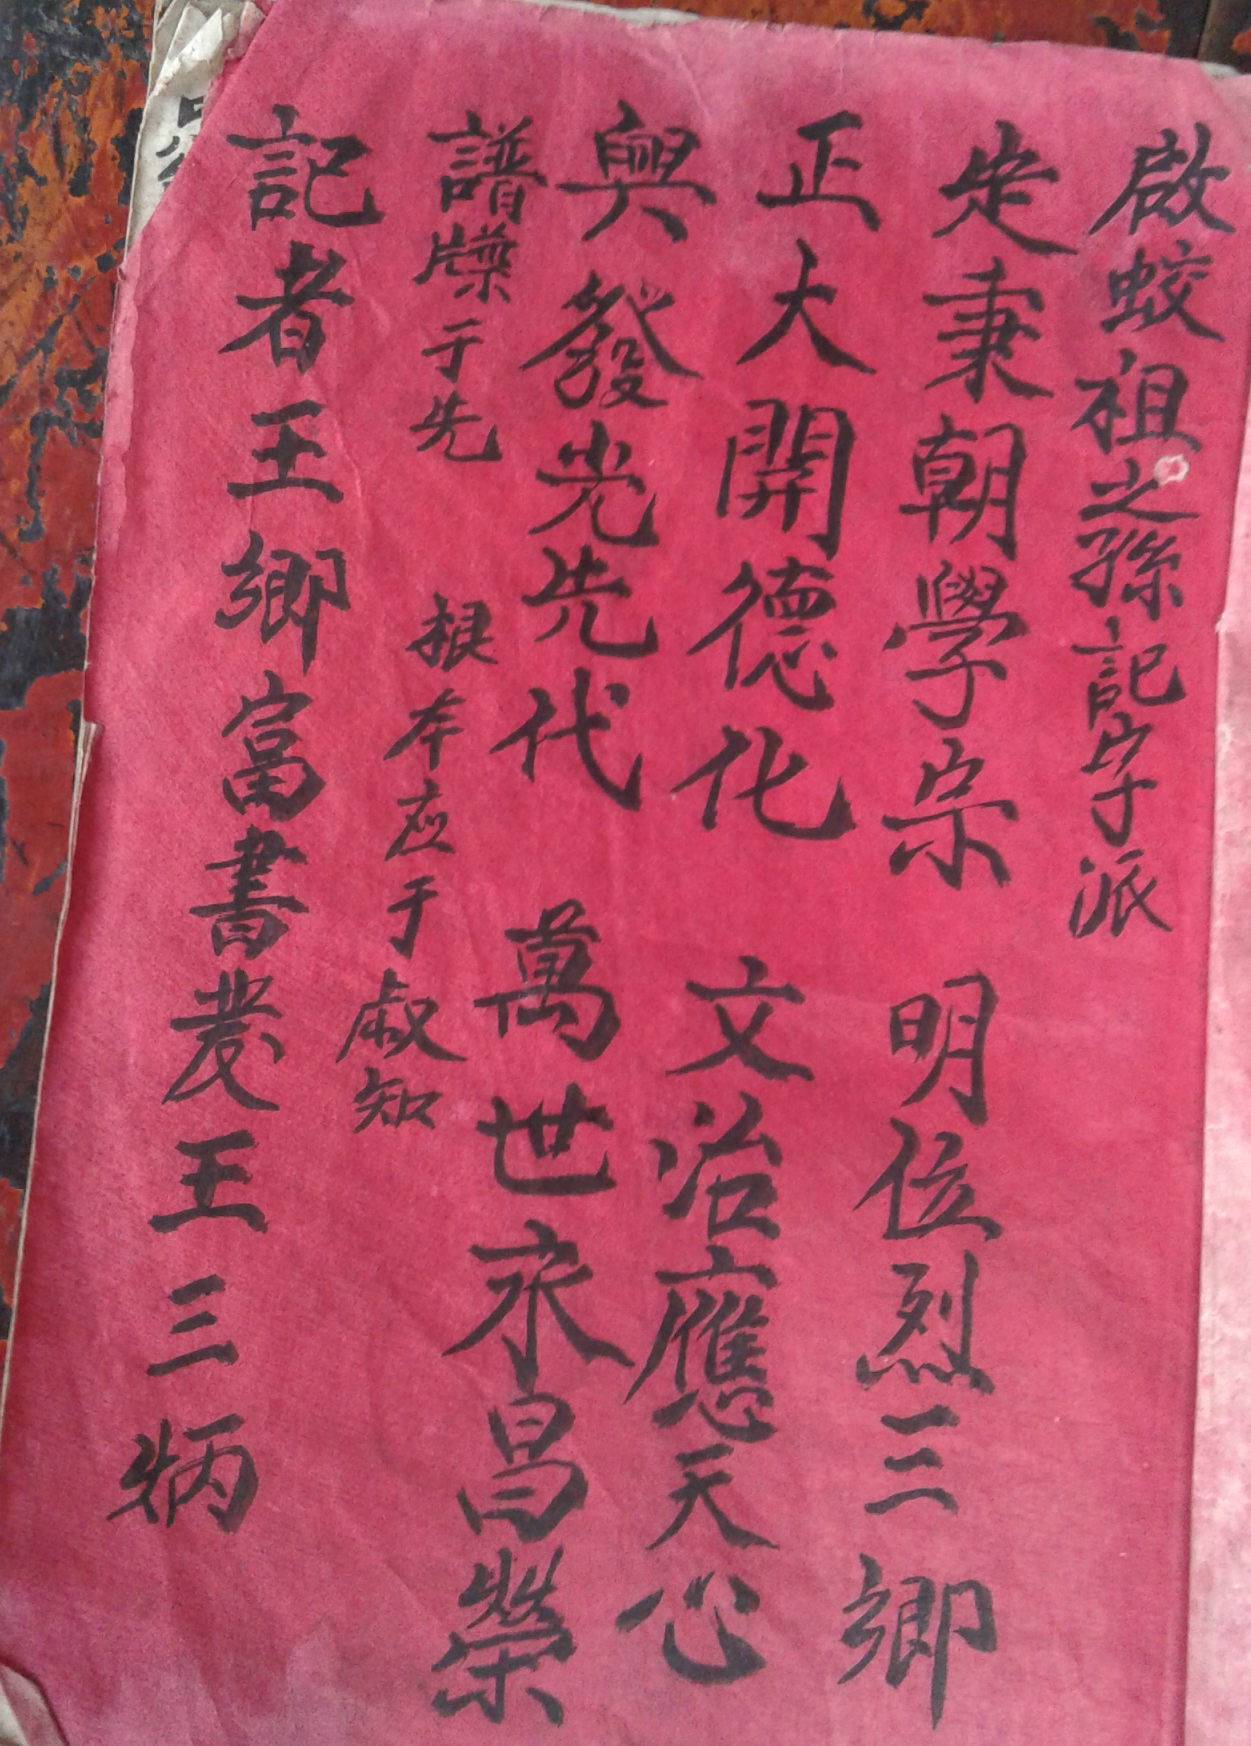 啟蛟祖之孫記字派
定秉朝學宗 明位烈三鄉
正大開德化 文治應天心
興發光先代 萬世永昌榮
譜牒于先 根本应于叔知
記者王鄉富書发王三炳